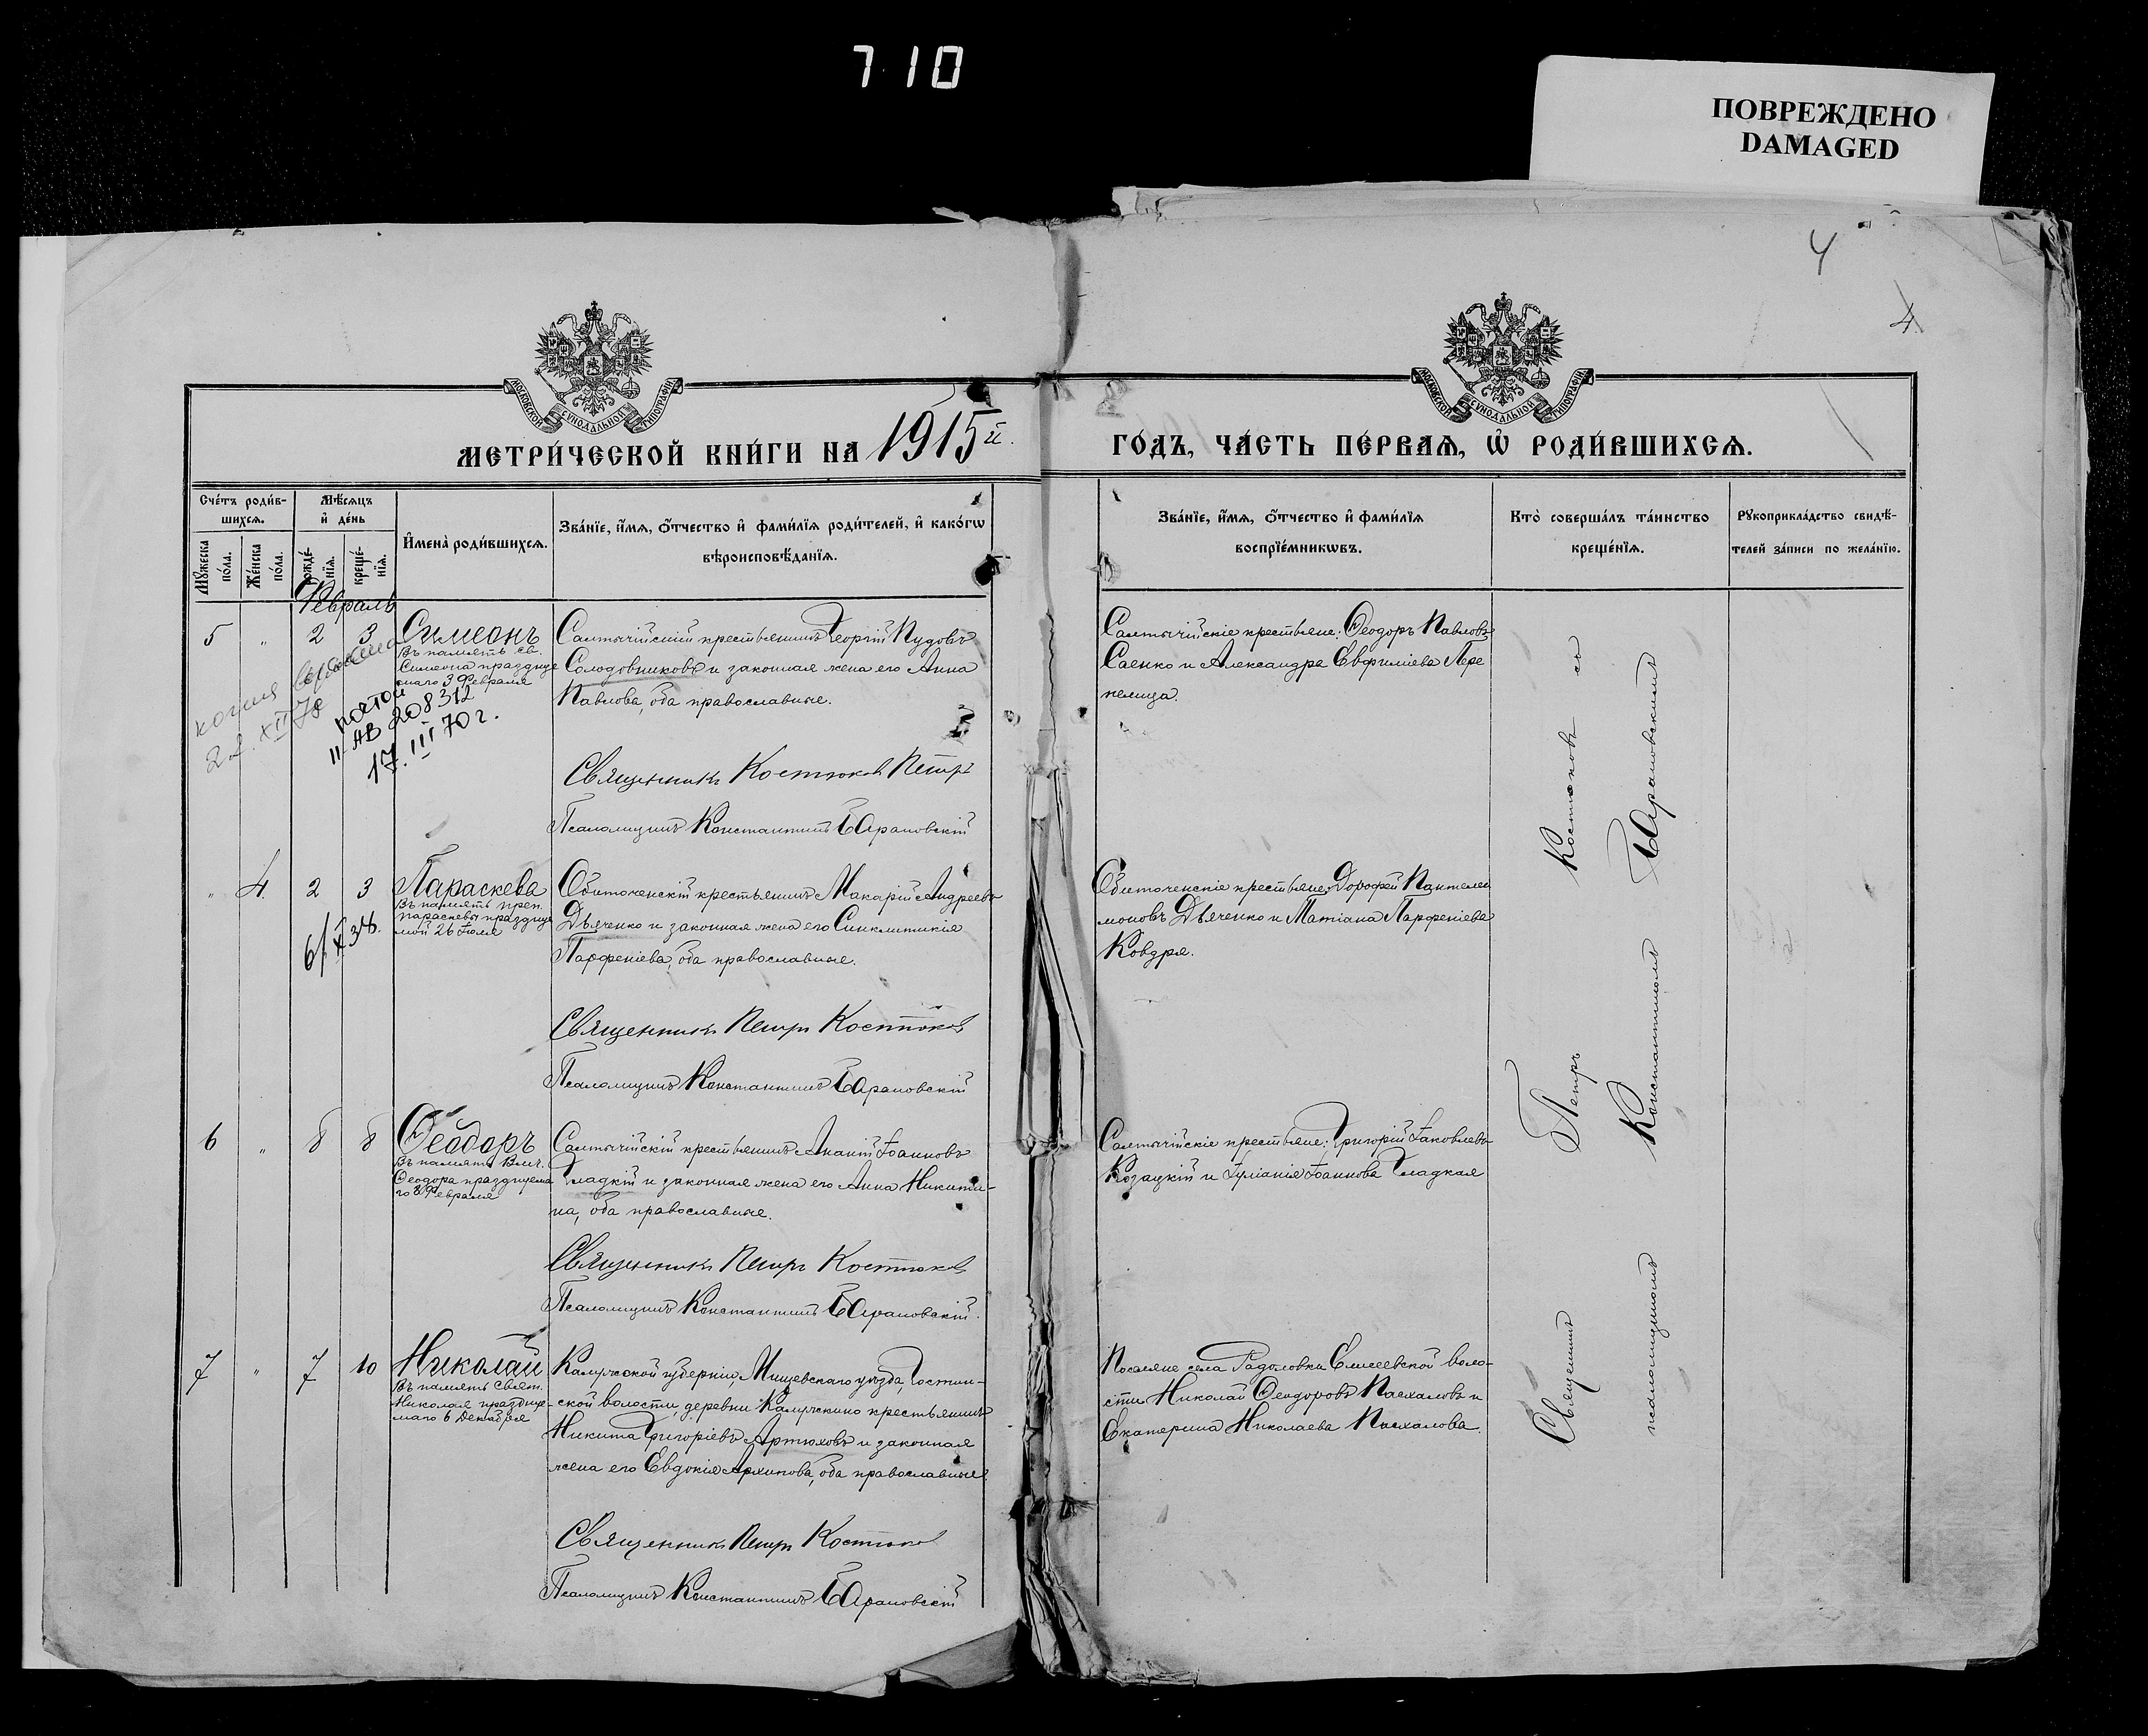 710
ПОВРЕЖДЕНО
DAMAGED
4
4
МОСКОВСКОЙ СѴНОДАЛЬНОЙ ТИПОГРАФІИ
МОСКОВСКОЙ СѴНОДАЛЬНОЙ ТИПОГРАФІИ
МЕТРИ́ЧЕСКОЙ КНИ́ГИ НА 1915й.
ГО́ДЪ, ЧА́СТЬ ПЕ́РВАѦ, Ѡ҆ РОДИ́ВШИХСѦ.
Сче́тъ роди́в-
шихсѧ.
Мꙋ́жеска
по́ла.
Же́нска
по́ла.
Мѣ́сѧцъ
и҆ де́нь
рожде́-
нїѧ.
креще́-
нїѧ.
И҆мена̀ роди́вшихсѧ.
Зва́нїе, и҆́мѧ, ѻ҆́тчество и҆ фами́лїѧ роди́телей, и҆ како́гѡ
вѣроисповѣ́данїѧ.
Зва́нїе, и҆́мѧ, ѻ҆́тчество и҆ фами́лїѧ
воспрїе́мникѡвъ.
Кто̀ соверша́лъ та́инство
креще́нїѧ.
Рꙋкоприкла́дство свидѣ́-
телей за́писи по жела́нїю.
Февраль
5 „ 2 3
Симеонъ
Въ память св.
Симеона праздну
емаго 3 Февраля
копия
22.XII 78
II-АВ 208312
17. III 70 г.
Салтычійскій крестьянинъ Георгій Пудовъ
Солодовниковъ и законная жена его Анна
Павлова, оба православные.
Священникъ Костюковъ Петръ
Псаломщикъ Константинъ Барановскій
Салтычійскіе крестьяне: Ѳеодоръ Павловъ
Саенко и Александра Евфиміева Пере
пелица.
„ 4. 2 3
Параскева
Въ память преп.
Параскевы праздну
мой 26 Іюля
6/X 34.
Обиточенскій крестьянинъ Макарій Андреевъ
Дьяченко и законная жена его Синклитикія
Парфеніева, оба православные.
Священникъ Петръ Костюковъ
Псаломщикъ Константинъ Барановскій
Обиточенскіе крестьяне: Дорофей Пантелеи
моновъ Дьяченко и Татіана Парфеніева
Ковдря.
6 „ 8 8
Ѳеодоръ
Въ память Влмч.
Ѳеодора празднуема
го 8 Февраля
Салтычійскій крестьянинъ Ананій Іоанновъ
Гладкій и законная жена его Анна Никити-
на, оба православные.
Священникъ Петръ Костюковъ
Псаломщикъ Константинъ Барановскій.
Салтычійскіе крестьяне: Григорій Іаковлевъ
Козацкій и Іуліанія Іоаннова Гладкая
7 „ 7 10
Николай
Въ память Свят.
Николая праздну-
маго 6 Декабря
Калужской губерніи, Мищевскаго уѣзда, Гостин-
ской волости, деревни Калужкино крестьянинъ
Никита Григоріевъ Артюховъ и законная
жена его Евдокія Архипова, оба православные.
Священникъ Петръ Костюковъ
Псаломщикъ Константинъ Барановскій
Поселяне села Радоловки Елисеевской воло-
сти Николай Ѳеодоровъ Пасхаловъ и
Екатерина Николаева Пасхалова.
Священникъ Петръ Костюковъ съ
псаломщикомъ Константиномъ Барановскимъ